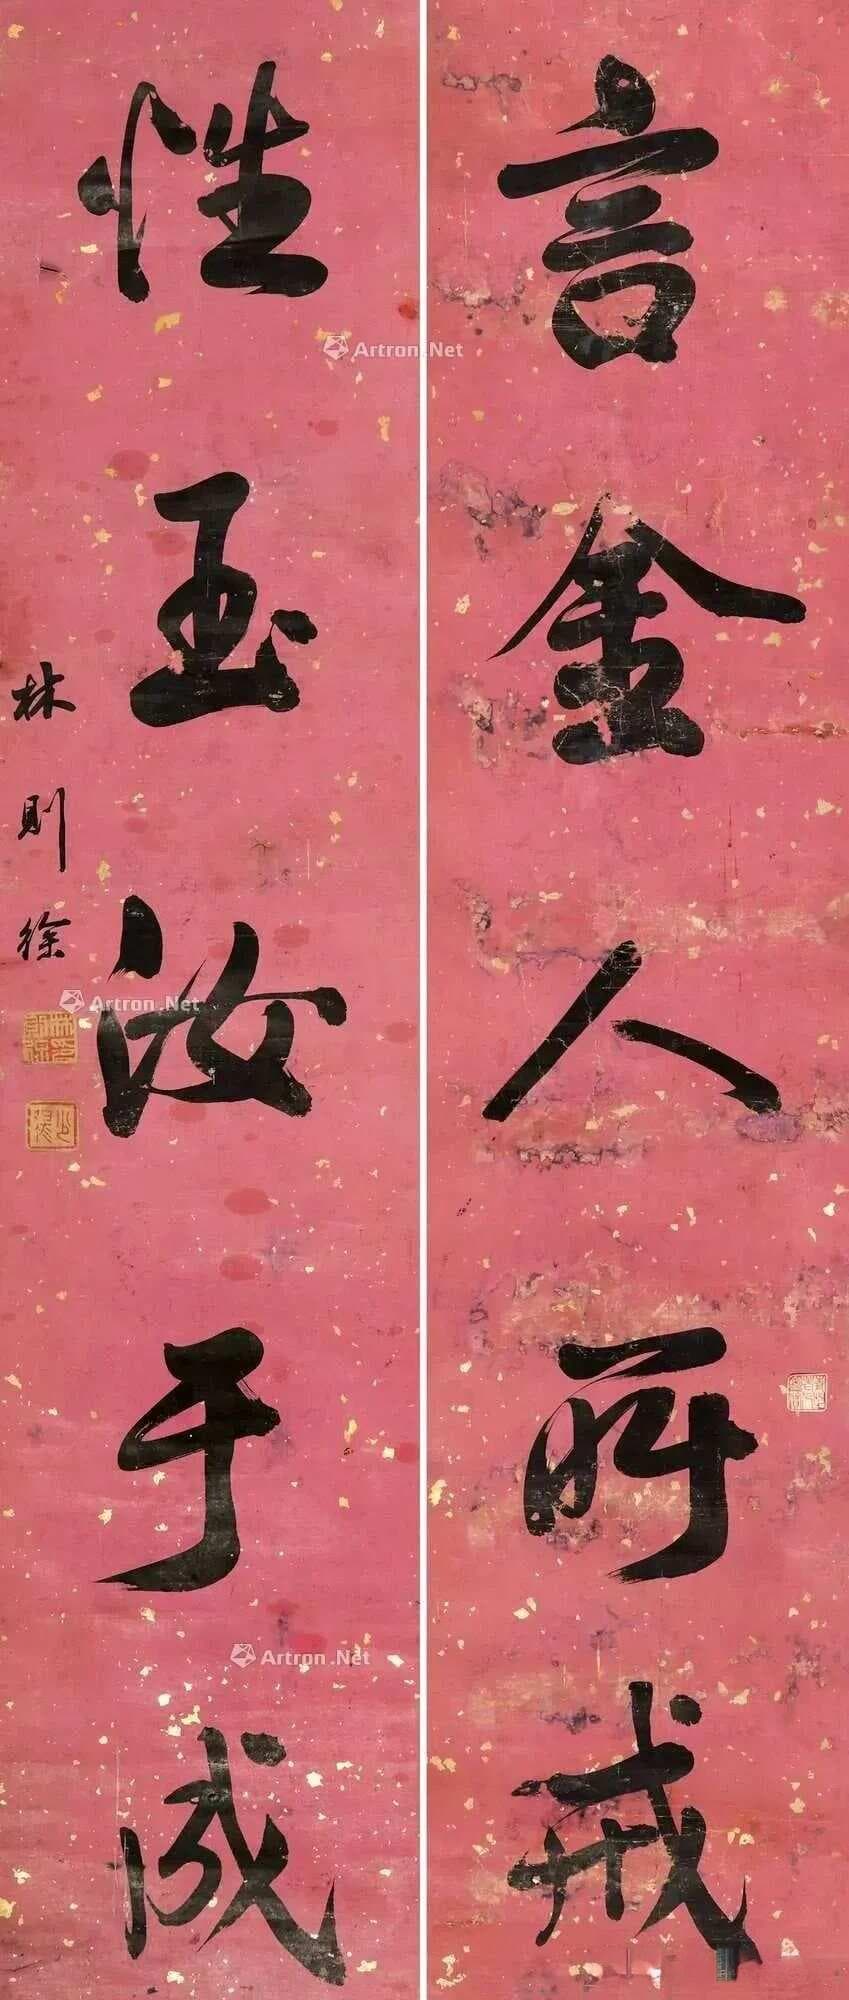 言金人所戒
性玉汝于成
林則徐
林則徐印
少穆
Artron.Net
Artron.Net
Artron.Net